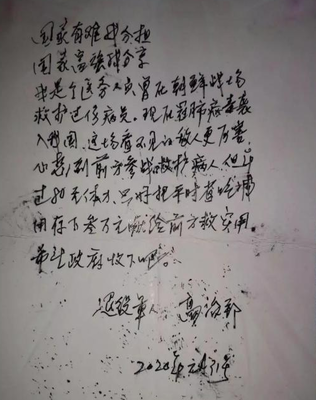 国家有难我分担
国家富强我分享
我是个医务人员曾在朝鲜战场
救护过伤病员。现在冠肺病毒袭
入我国。这场看不见的敌人更厉害
心想到前方参战救护病人,但年
过80无体力,只好把平时省吃俭
用存下叁万元献给前方救实用。
希望政府收下吧。
退役军人 高治郡
2020年元月31号